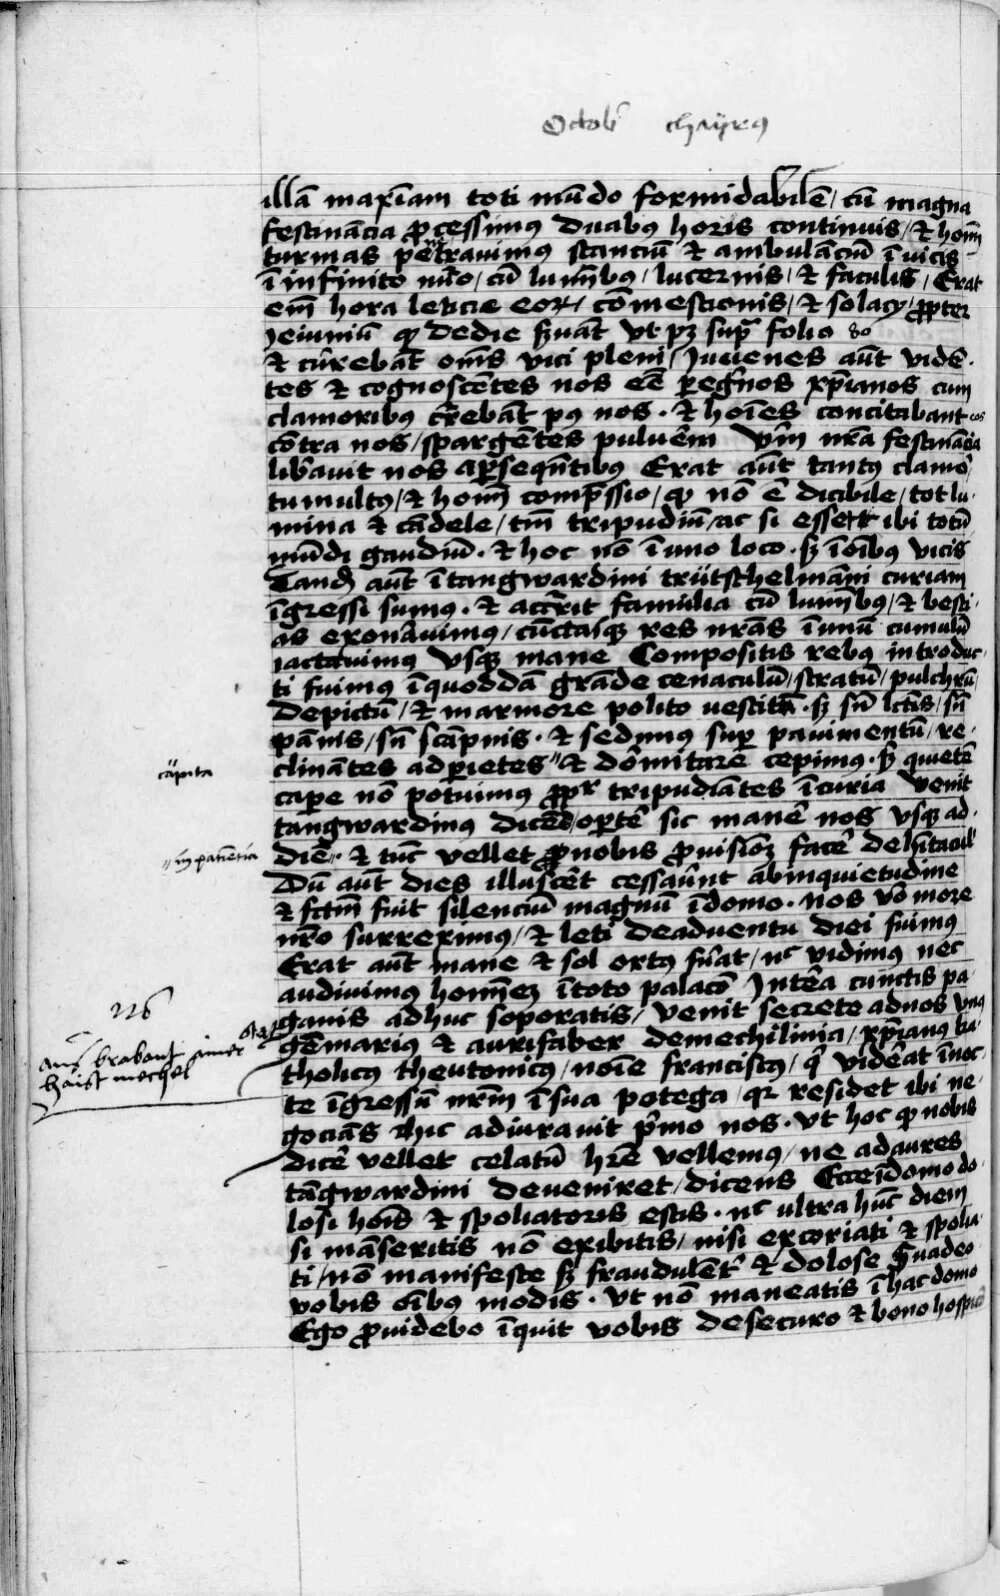 Octob̄ chayrꝰ
illā maxīam toti mūdo formidabilē / cū magna
festinācia ꝓcessimꝰ duabꝰ horis continuis / & homī
turmas penetrauimꝰ stanciū & ambulāciū ī vicis
ī infinito nūo / cū lumībꝰ / lucernis / & faculis / Erat
em̄ hora leticie eoꝝ / cōmestionis / & solacy / ꝓpter
Jeiuniū ꝙ de die ẜuāt vt pꝫ supᷓ folio 80
& cūrebāt oms̄ vici pleni / Juuenes aūt vidē-
tes & cognoscētes nos eē peregͥnos xp̄ianos cum
clamoribꝰ cūrebāt pꝰ nos . & hoīes concitabant eos
cōtra nos / spargētes puluēm vm̄ nrā festinācia
libāuit nos a ꝑseqn̄tibꝰ Erat aūt tantꝰ clamor
tumultꝰ / & homī comp̄ssio / ꝙ nō ē dicibile / tot lu-
mina & cādele / tm̄ tripudiū / ac si essett ibi totū
mūdi gaudiū . & hoc nō ī uno loco . sꝫ ī oībꝰ vicis
Tandē aūt ī tangwardini trütschelmāni curiam
īgressi sumus . & accūrit familia cū lumībꝰ / & besti-
as exonāuimꝰ / cūctasqꝫ res nrās ī unū cumulū
iactauimꝰ vsqꝫ mane Compositis rebꝰ introduc-
ti fuimꝰ ī quoddā grāde cenaculū / stratū / pulchrū /
depictū / & marmore polito vestitū . sꝫ sn̄ lctīs / sn̄
pānis / sn̄ scāpnis . & sedimꝰ suꝑ pauimentū / re-
clinātes ad parietes " & dōmitare cepimꝰ . sꝫ quietē
cāpita
cape nō potuimꝰ ꝓpͬ tripudiātes ī curia venit
tangwardinus dicēs / oportē sic manē nos vsqꝫ ad-
" inpaciētia
diē " & tūc vellet ꝓ nobis ꝓuisiōꝫ facē de hītacul̄
Dū aūt dies illuscēt cessaūnt ab inquietudine
& fctm̄ fuit silenciū magnū ī domo . nos vō more
nrō surreximꝰ / & leti de aduentu diei fuimꝰ
Erat aūt mane & sol ortꝰ fūat / nc̄ vidimꝰ nec
audiuimꝰ homīeꝫ ī toto palacō Intēa cunctis pa-
ganis adhuc soporatis / venit secrete ad nos vnꝰ
gēmariꝰ & aurifaber de mechilinia / xp̄ianꝰ ka-
tholicꝰ theutonicꝰ / noīe franciscꝰ / qͥ vidēat ī noc-
te īgressū nrm̄ ī sua potega / qꝛ residet ibi ne-
gociās hic adiurauit pͥmo nos . vt hoc ꝙ nobis
dicē vellet celatū hr̄e vellemꝰ / ne ad aures
tāgwardini deueniret / dicens Ecce ī domo do-
losi hoīs & spoliatoris estis . nc̄ ultra hūc diem
si māseritis nō exibitis / nisi excoriati & spolia-
ti / nō manifeste sꝫ fraudulēt̄ & dolose Suadeo
vobis oībꝰ modis . vt nō maneatis ī hac domo
Ego ꝓuidebo īquit vobis de securo & bono hospicio